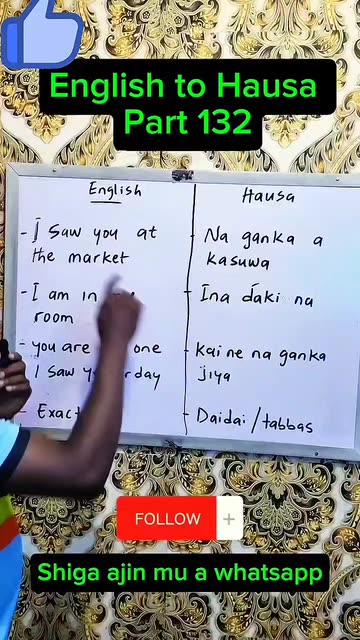 English to Hausa
Part 132
English
Hausa
- I saw you at
the market
- Na ganka a
kasuwa
- I am in
room
- Ina ɗaki na
- you are one
I saw y rday
- Kai ne na ganka
jiya
- Exact
- Daidai/tabbas
FOLLOW +
Shiga ajin mu a whatsapp